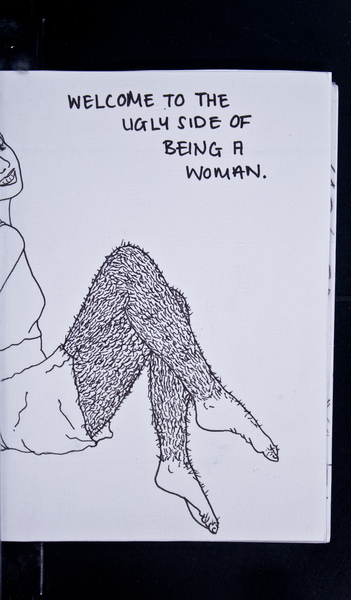 WELCOME TO THE
UGLY SIDE OF
BEING A
WOMAN.